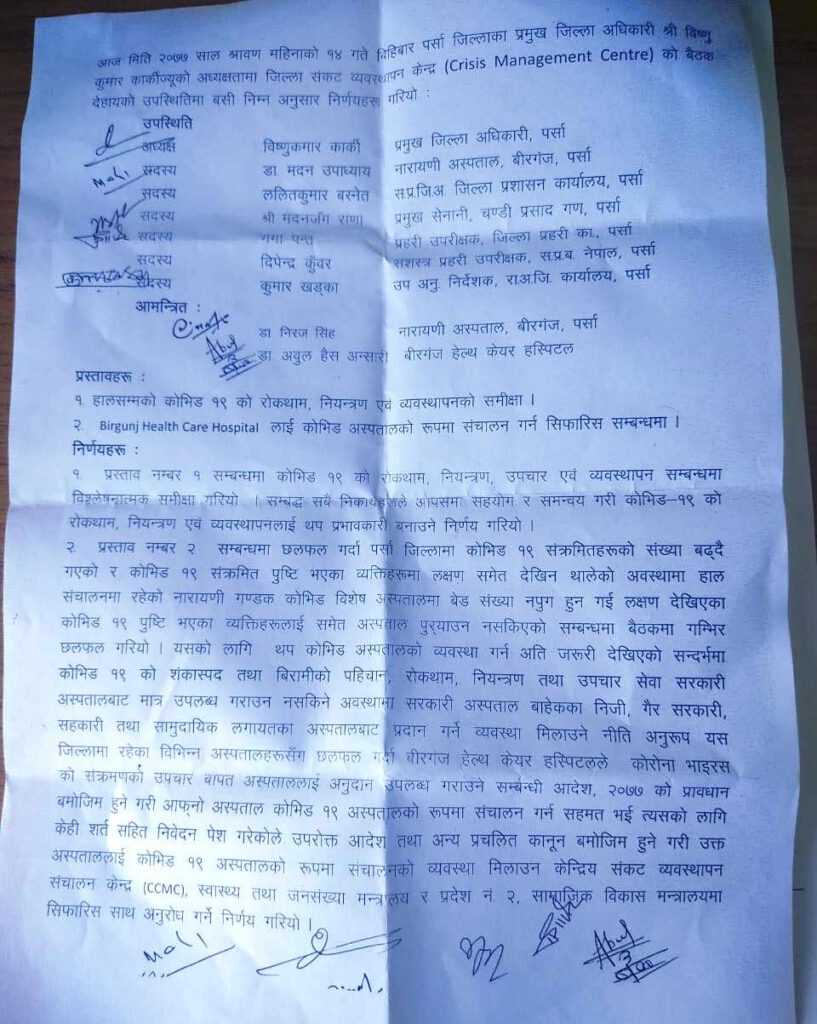 आज मिति २०७७ साल श्रावण महिनाको १४ गते बिहिबार पर्सा जिल्लाका प्रमुख जिल्ला अधिकारी श्री विष्णु
कुमार कार्कीज्यूको अध्यक्षतामा जिल्ला संकट व्यवस्थापन केन्द्र (Crisis Management Centre) को बैठक
देहायको उपस्थितिमा बसी निम्न अनुसार निर्णयहरू गरियो :
उपस्थिति
अध्यक्ष विष्णुकमार कार्की प्रमुख जिल्ला अधिकारी, पर्सा
सदस्य डा मदन उपाध्याय नारायणी अस्पताल, बीरगंज, पर्सा
सदस्य ललितकुमार बस्नेत स.प्र.जि.अ. जिल्ला प्रशासन कार्यालय, पर्सा
सदस्य श्री मदनजंग राणा प्रमुख सेनानी, चण्डी प्रसाद गण, पर्सा
सदस्य गंगा पन्त प्रहरी उपरीक्षक, जिल्ला प्रहरी का., पर्सा
सदस्य दिपेन्द्र कुँवर सशस्त्र प्रहरी उपरीक्षक, स.प्र.ब. नेपाल, पर्सा
सदस्य कुमार खड्का उप अनु. निर्देशक, रा.अ.जि. कार्यालय, पर्सा
आमन्त्रित :
डा निरज सिंह नारायणी अस्पताल, बीरगंज, पर्सा
डा अवुल हैस अन्सारी बीरगंज हेल्थ केयर हस्पिटल
प्रस्तावहरू :
१. हालसम्मको कोभिड १९ को रोकथाम, नियन्त्रण एवं व्यवस्थापनको समीक्षा ।
२. Birgunj Health Care Hospital लाई कोभिड अस्पतालको रूपमा संचालन गर्न सिफारिस सम्बन्धमा ।
निर्णयहरू :
१. प्रस्ताव नम्बर १ सम्बन्धमा कोभिड १९ को रोकथाम, नियन्त्रण, उपचार एवं व्यवस्थापन सम्बन्धमा
विश्लेषनात्मक समीक्षा गरियो । सम्बद्ध सबै निकायहरूले आपसमा सहयोग र समन्वय गरी कोभिड–१९ को
रोकथाम, नियन्त्रण एवं व्यवस्थापनलाई थप प्रभावकारी बनाउने निर्णय गरियो ।
२. प्रस्ताव नम्बर २ सम्बन्धमा छलफल गर्दा पर्सा जिल्लामा कोभिड १९ संक्रमितहरूको संख्या बढ्दै
गएको र कोभिड १९ संक्रमित पुष्टि भएका व्यक्तिहरूमा लक्षण समेत देखिन थालेको अवस्थामा हाल
संचालनमा रहेको नारायणी गण्डक कोभिड विशेष अस्पतालमा बेड संख्या नपुग हुन गई लक्षण देखिएका
कोभिड १९ पुष्टि भएका व्यक्तिहरूलाई समेत अस्पताल पुर्‍याउन नसकिएको सम्बन्धमा बैठकमा गम्भिर
छलफल गरियो । यसको लागि थप कोभिड अस्पतालको व्यवस्था गर्न अति जरूरी देखिएको सन्दर्भमा
कोभिड १९ को शंकास्पद तथा बिरामीको पहिचान, रोकथाम, नियन्त्रण तथा उपचार सेवा सरकारी
अस्पतालबाट मात्र उपलब्ध गराउन नसकिने अवस्थामा सरकारी अस्पताल बाहेकका निजी, गैर सरकारी,
सहकारी तथा सामुदायिक लगायतका अस्पतालबाट प्रदान गर्ने व्यवस्था मिलाउने नीति अनुरूप यस
जिल्लामा रहेका विभिन्न अस्पतालहरूसँग छलफल गर्दा बीरगंज हेल्थ केयर हस्पिटलले कोरोना भाइरस
को संक्रमणको उपचार बापत अस्पताललाई अनुदान उपलब्ध गराउने सम्बन्धी आदेश, २०७७ को प्रावधान
बमोजिम हुने गरी आफ्नो अस्पताल कोभिड १९ अस्पतालको रूपमा संचालन गर्न सहमत भई त्यसको लागि
केही शर्त सहित निवेदन पेश गरेकोले उपरोक्त आदेश तथा अन्य प्रचलित कानून बमोजिम हुने गरी उक्त
अस्पताललाई कोभिड १९ अस्पतालको रूपमा संचालनको व्यवस्था मिलाउन केन्द्रिय संकट व्यवस्थापन
संचालन केन्द्र (CCMC), स्वास्थ्य तथा जनसंख्या मन्त्रालय र प्रदेश नं. २, सामाजिक विकास मन्त्रालयमा
सिफारिस साथ अनुरोध गर्ने निर्णय गरियो ।